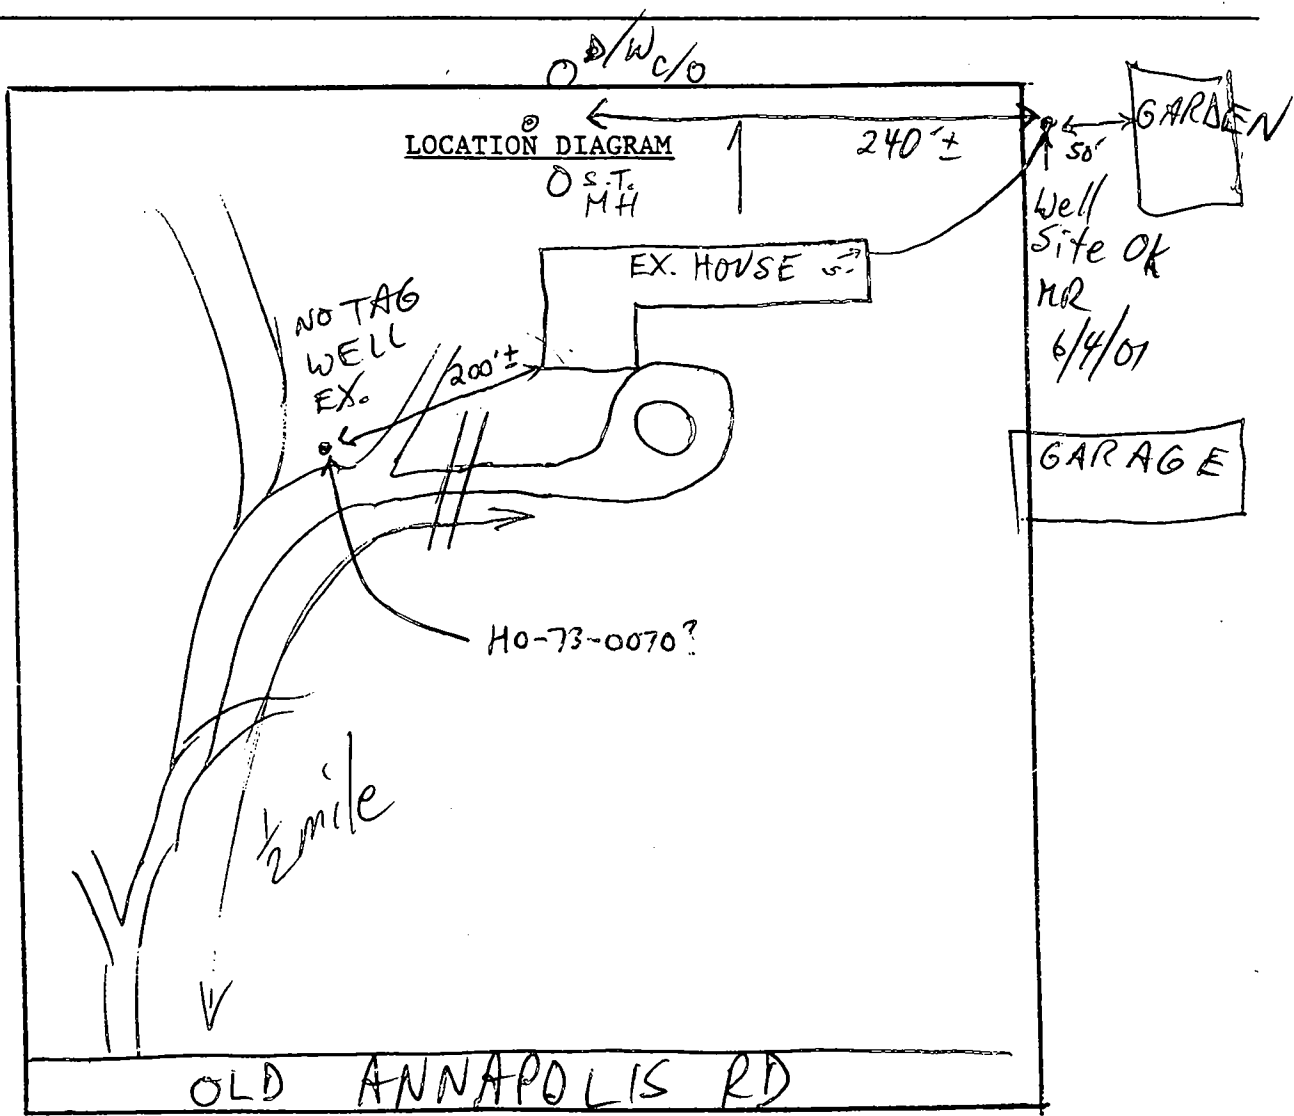 D/W C/O
LOCATION DIAGRAM
S.T.
MH
240'±
50'
GARDEN
Well
Site OK
MR
6/4/01
EX. HOUSE
NO TAG
WELL
EX.
200'±
GARAGE
HO-73-0070?
1/2 mile
OLD ANNAPOLIS RD